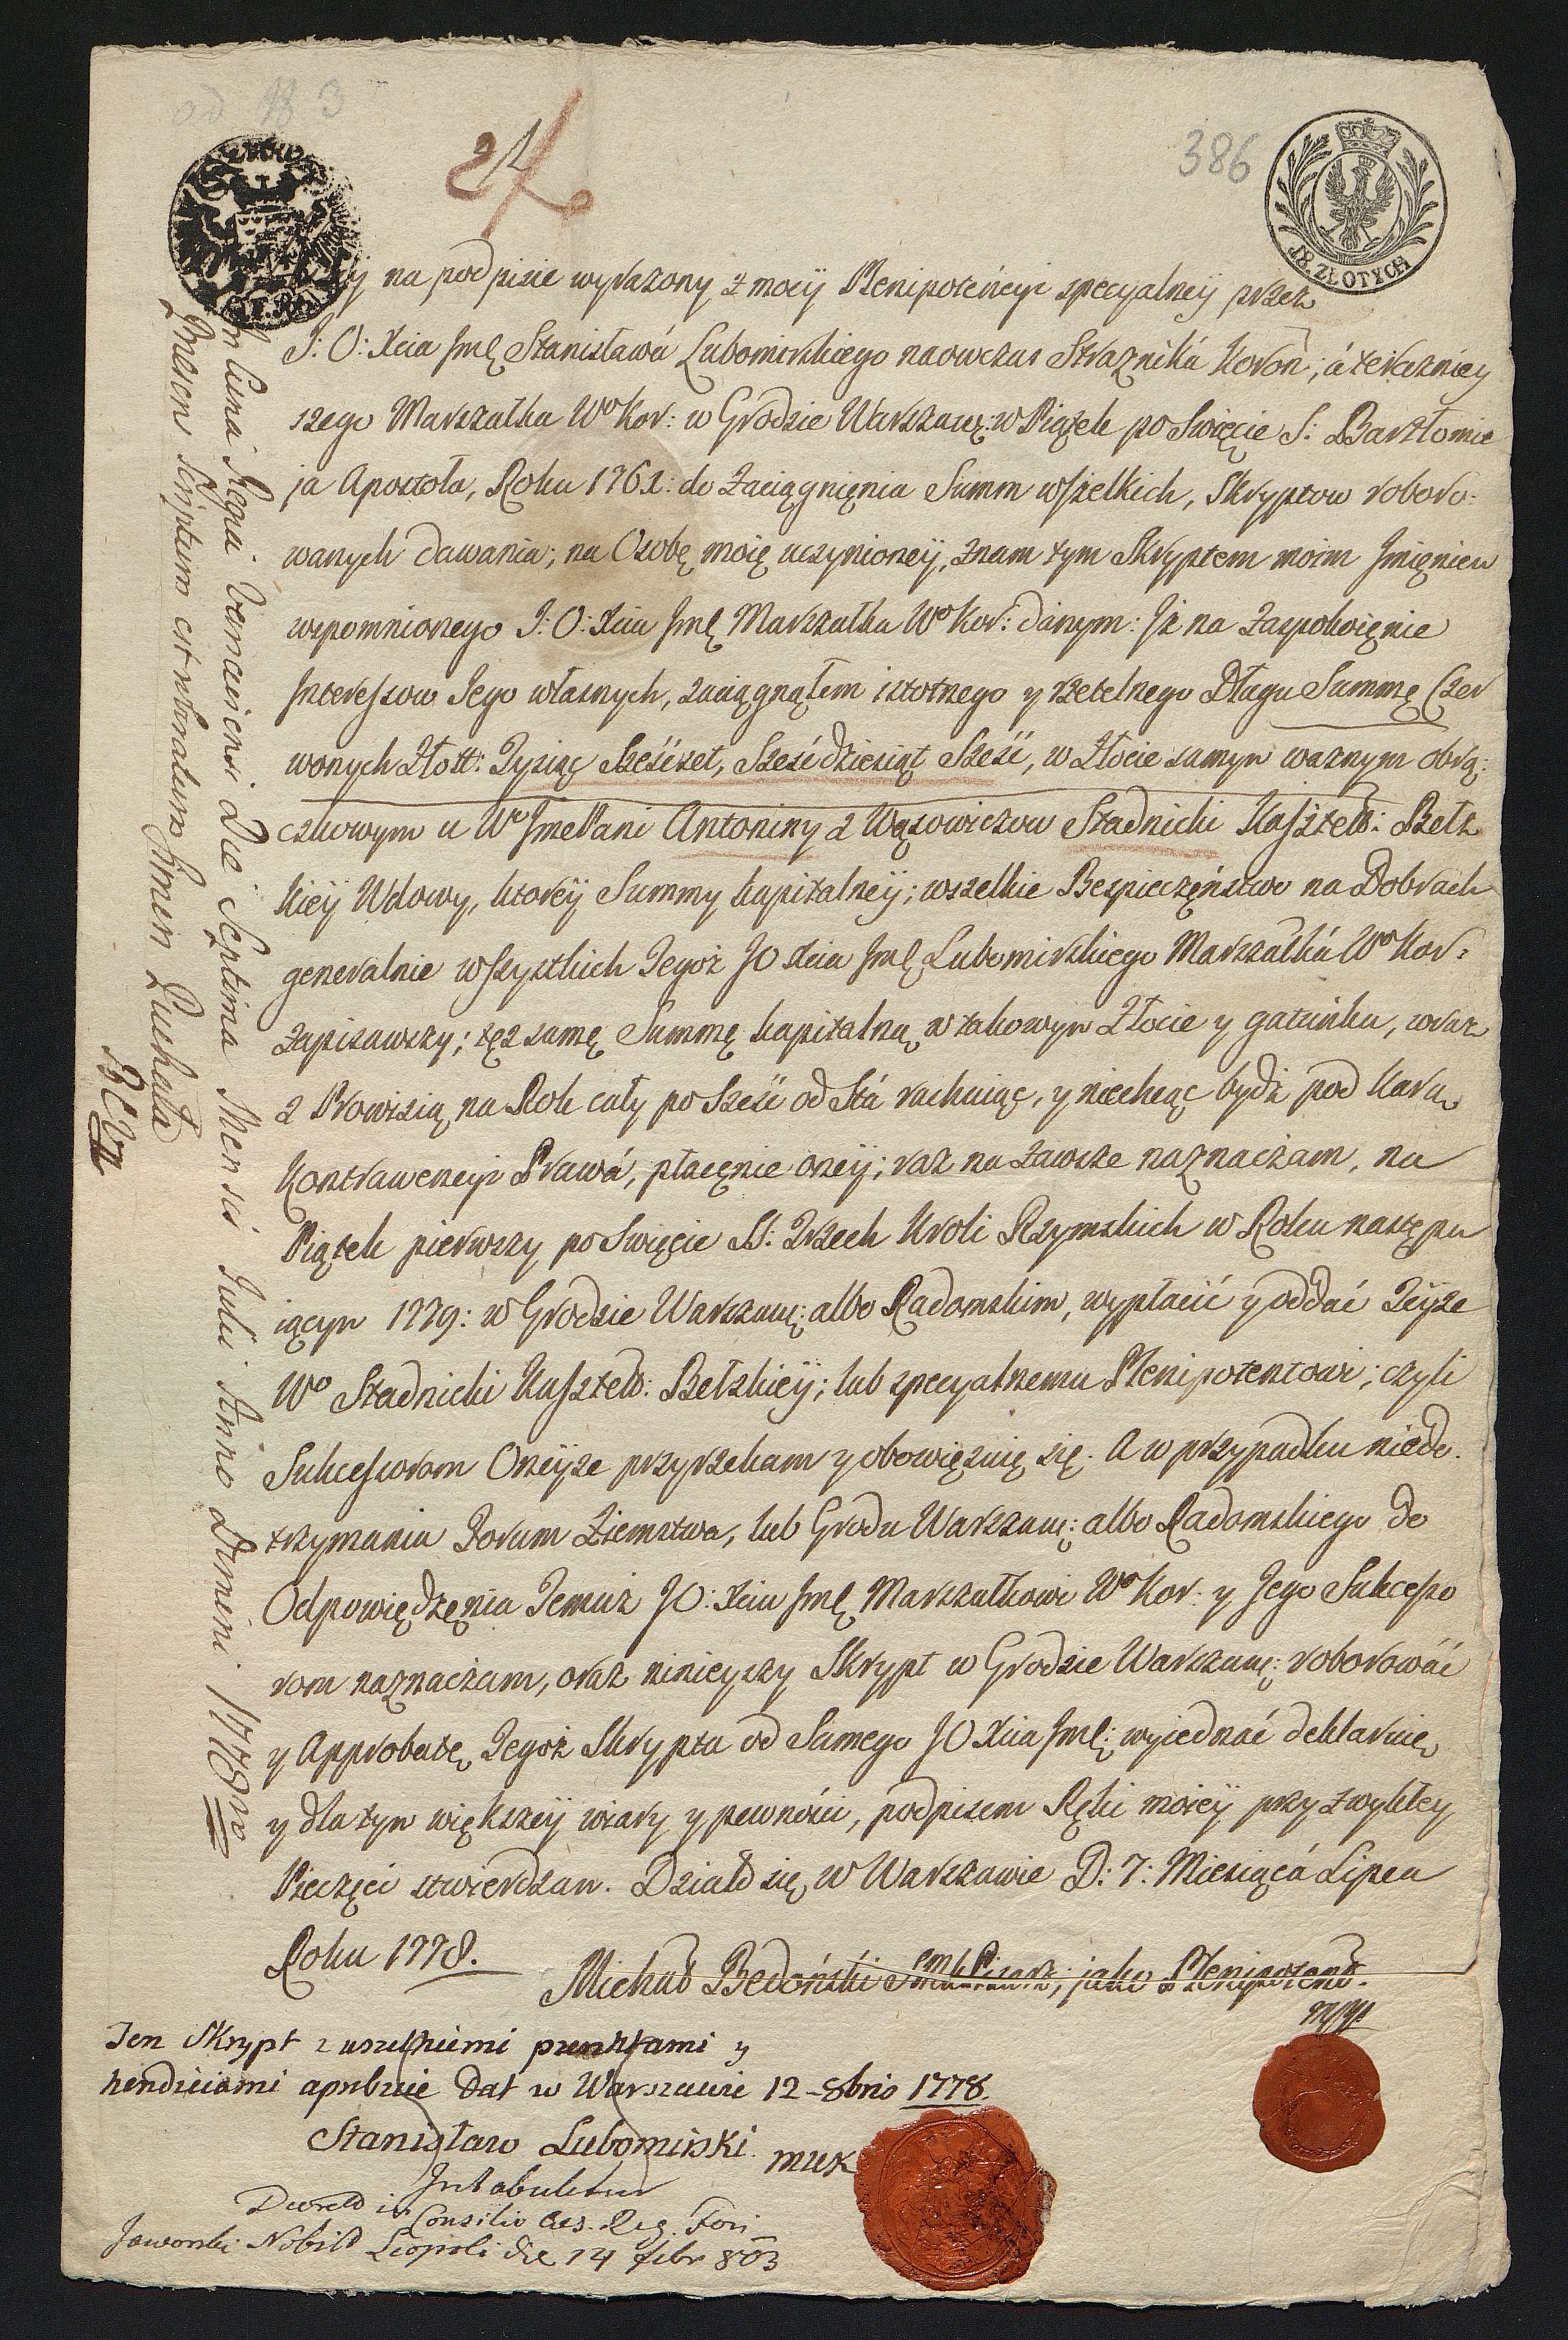 od 18 3
24
386
18. ZŁOTYCH
na podpisie wyrażony z mocy Plenipotencyi specyalney przez
J: O: Xcia Jmę Stanisława Lubomirskiego naowczas Strażnika Koron; á teraźniey
szego Marszałka Wo Kor: w Grodzie Warszaw: w Piątek po Swięcie S: Bartłomie
ja Apostoła, Roku 1761: do zaciągnięnia Summ wszelkich, Skryptow roboro-
wanych dawania; na Osobę moię uczynioney, znam tym Skryptem moim Jmięniem
wspomnionego J: O: Xcia Jmę Marszałka Wo Kor: danym: Jż na zaspokoięnie
Jnteressow Jego własnych, zaciągnąłem istotnego y rzetelnego Długu Summę Czer
wonych Złott: Tysiąc Sześćset, Sześćdziesiąt Sześć, w Złocie samym ważnym obrą:
czkowym u Wo JmePani Antoniny z Wąsowiczow Stadnicki Kasztel: Bełz
kiey Wdowy, ktorey Summy kapitalney; wszelkie Bespieczęństwo na Dobrach
generalnie wszystkich Tegoż JO Xcia Jmę Lubomirskiego Marszałká Wo Kor:
zapisawszy; tęż samę Summę kapitalną w takowym Złocie y gatuńku, wraz
z Prowizią na Rok cały po Sześć od Stá rachuiąc, y niechcąc bydź pod Karą
Kontrawencyi Prawá, płacęnie oney; raz na zawsze naznaczam, na
Piątek pierwszy po Swięcie SS: Trzech Kroli Rzymskich w Roku następu
iącym 1779: w Grodzie Warszaw: albo Radomskim, wypłacić y oddać Teyże
Wo Stadnicki Kasztel: Bełzkiey; lub specyalnemu Plenipotentowi; czyli
Sukcessorom Oneyże przyrzekam y obowięzuię się. A w przypadku niedo-
trzymania Forum Ziemstwa, lub Grodu Warszaw: albo Radomskiego do
Odpowiędzęnia Temuż JO: Xciu Jmę Marszałkowi Wo Kor: y Jego Sukcesso
rom naznaczam, oraz ninieyszy Skrypt w Grodzie Warszaw: roborowáć
y Approbatę Tegoż Skryptu od Samego JO Xcia Jmę: wyiednać deklaruię
y dla tym większey wiary y pewności, podpisem Ręki moiey przy zwykłey
Pieczęci stwierdzam. Działo się w Warszawie D: 7: Miesiącá Lipca
Roku 1778.
Michał Bedoński jako Plenipotent.
mpp
Ten Skrypt z wszelkiemi punktami y
kendiciami aprobuie Dat w Warszawie 12-8bris 1778.
Stanisław Lubomirski mwk
Intabuletur
Decretd in Consilio Caes. Reg. Fori
Jaworski Nobild Leopoli die 14 febr 803
In Curia Regia Varsaviensi Die Septima Mensis Julii Anno Domini 1778vo
Praesen Scriptum est roboratum Amen Puchała